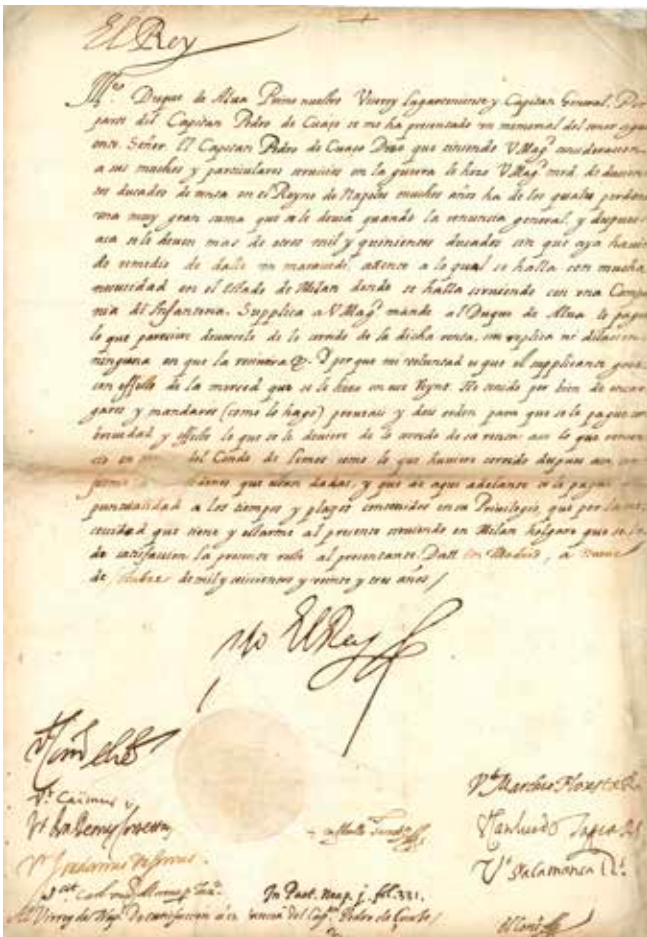 El Rey
Ill.e Duque de Alua Primo nuestro Virrey Lugarteniente y Capitan General. Por
parte del Capitan Pedro de Cuaço se me ha presentado un memorial del tenor sigui
ente. Señor. El Capitan Pedro de Cuaço Dize que teniendo V.Mag.d consideracion
a sus muchos y particulares seruicios en la guerra le hizo V.Mag.d mrd. de duzien
tos ducados de renta en el Reyno de Napoles muchos años ha de los quales perdono
una muy gran suma que se le deuia quando la renuncia general, y despues
aca se le deuen mas de otros mil y quinientos ducados sin que aya hauido
de remedio de dalle un marauedi, attento a lo qual se halla con mucha
necessidad en el estado de Milan donde se halla siruiendo con una Compa
nia de Infanteria. Supplica a V.Mag.d mande al Duque de Alua le pague
lo que pareciere deuersele de lo corrido de la dicha renta, sin replica ni dilacion
ninguna en que la reciuira &. Y porque mi voluntad es que el supplicante goze
con effetto de la merced que se le hizo en esse Reyno. He tenido por bien de encar
garos y mandaros (como lo hago) proueais y deis orden para que se le pague con
breuedad y effetto lo que se le deuiere de lo corrido de su renta: assi lo que
en del Conde de Lemos como lo que huuiere corrido despues aca, con
forme ordenes que estan dadas, y que de aqui adelante se le pague
puntualidad a los tiempos y plaços contenidos en su Priuilegio, que por la ne
cessidad que tiene y estarme al presente siruiendo en Milan holgare que se le
de satisfaccion. la presente reste al presentante. Datt en Madrid, a
de Otubre de mil y seiscientos y veinte y tres años /
yo El Rey
V.t Caimus
V.t Marchio
V.t Salamanca
In Part. Neap. j. fol. 331.
Al Virrey de Nap. De satisfaccion a la del Cap.n Pedro de Cuaço /